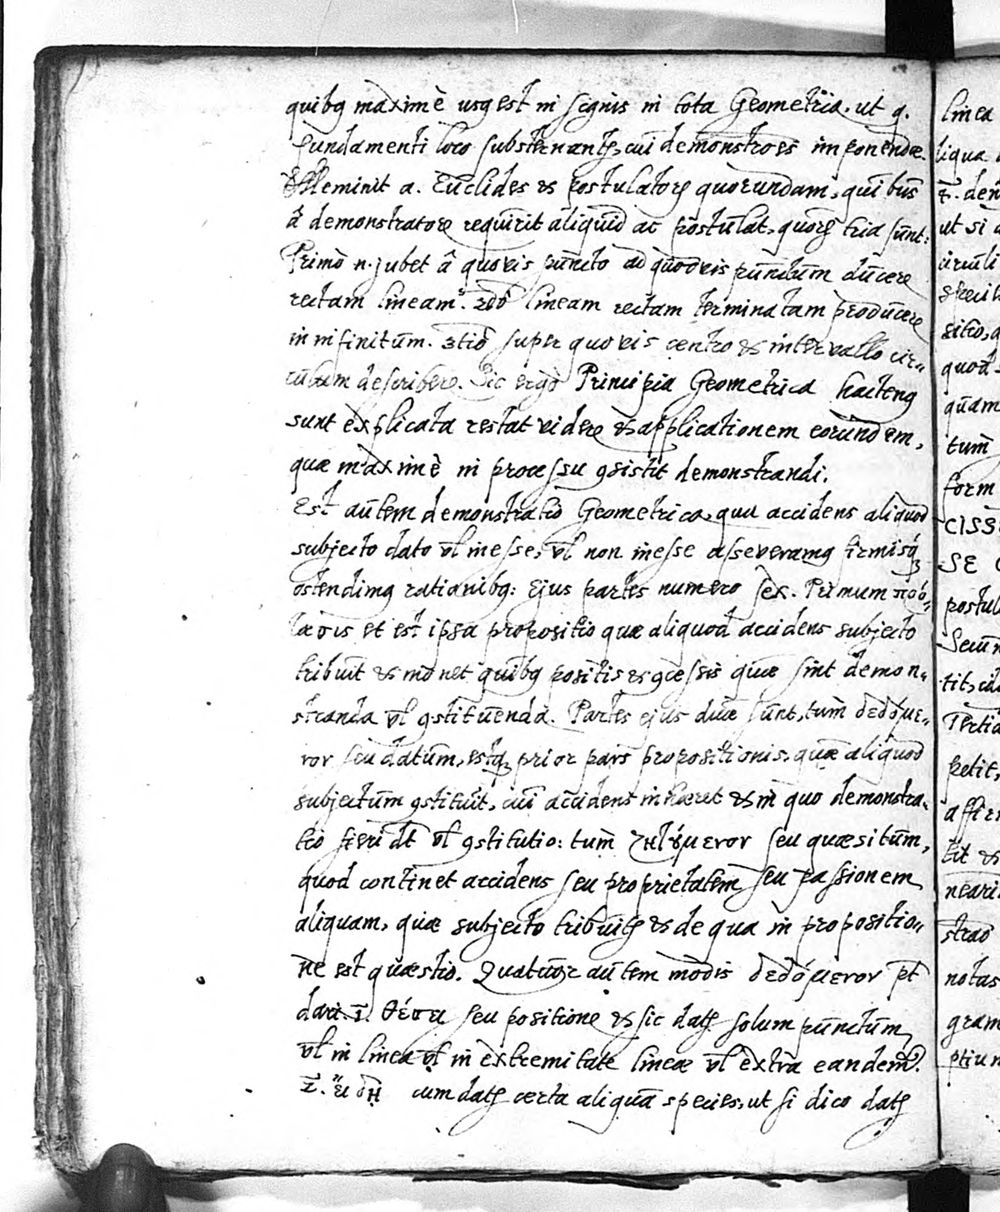 quibq maximè usq est in signis in tota Geometria. ut q.
fundamenti loco substernantr, cui demonstroes imponendæ.
Meminit a. Euclides es postulatorr quorundam, qui bus
â demonstratore requirit aliquid ac postulat, quorr tria sunt:
Primò n. jubet â quovis puncto ad quodvis punctum ducere
rectam lineam. 2do lineam rectam terminatam producere
in infinitum. 3tio super quovis centro es intervallo cir-
culum describere. Sic ergo Principia Geometrica hacteng
sunt explicata restat videre es applicationem eorundem,
quæ maximè in processu 9sistit demonstrandi.
Est autem demonstratio Geometrica, qua accidens aliquod
subjecto dato vl inesse, vl non inesse asseveramq firmisq
ostendimq rationibq: Ejus partes numero sex. Primum πρόβ-
λημα et est ipsa propositio quæ aliquod accidens subjecto
tribuit es monet quibq positis es 9cessis quæ sint demon-
stranda vl 9stituenda. Partes ejus duæ sunt, tum δεδόμε-
νον seu datum, estq prior pars propositionis, quæ aliquod
subjectum 9stituit, cui accidens inhæret es in quo demonstra-
tio fieri dt vl 9stitutio: tum ζητούμενον seu quæsitum,
quod continet accidens seu proprietatem seu passionem
aliquam, quæ subjecto tribuitr es de qua in propositio-
ne est quæstio. Quatuor autem modis δεδόμενον pt
dari. 1. θέσει seu positione es sic datr solum punctum,
vl in linea vl in extremitate lineæ vl extra eandem.
2. εἴδη cum datr certa aliqua species, ut si dico datr
linea
ut si
quod
quam
tum
form
SE
notas